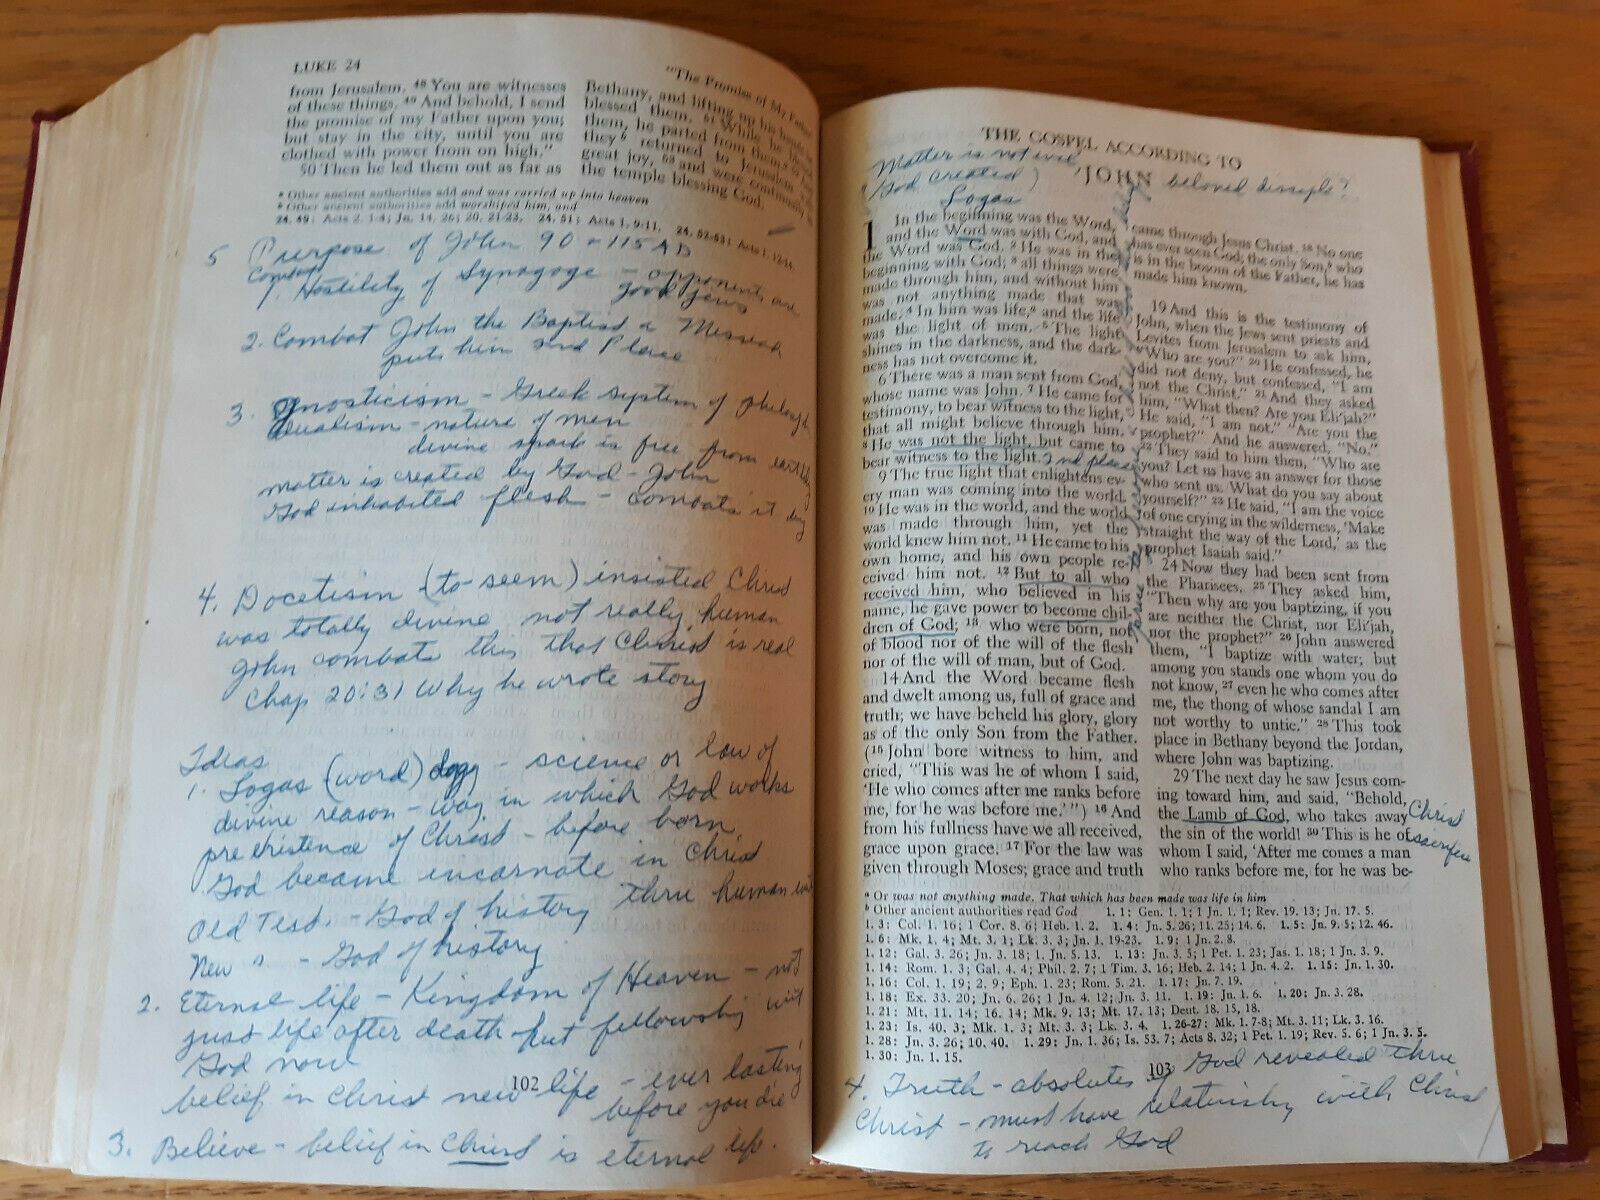 LUKE 24
"The Promise of My Father
from Jerusalem. 48 You are witnesses
of these things. 49 And behold, I send
the promise of my Father upon you;
but stay in the city, until you are
clothed with power from on high."
50 Then he led them out as far as
Bethany, and lifting up his hands he
blessed them. 51 While he blessed
them, he parted from them. 52 And
they returned to Jerusalem with
great joy, 53 and were continually in
the temple blessing God.
a Other ancient authorities add and was carried up into heaven
b Other ancient authorities add worshiped him, and
24. 49: Acts 2. 1-4; Jn. 14. 26; 20. 21-23. 24. 51: Acts 1. 9-11. 24. 52-53: Acts 1. 12-14.
5 Purpose of John 90 - 115 AD
Combat
1. Hostility of Synagoge - opponents are
good Jews
2. Combat John the Baptist a Messiah
puts him 2nd Place
3. Gnosticism - Greek system of philosophy
dualism - nature of men
divine spark is free from earthly
matter is created by God - John
God inhabited flesh - combats it
4. Docetism (to seem) insisted Christ
was totally divine not really human
John combats this that Christ is real
Chap 20:31 Why he wrote story
Ideas
1. Logas (word) ology - science or law of
divine reason - way in which God works
pre existence of Christ - before born
God became incarnate in Christ
Old Test. - God of history thru human
New " - God of history
2. Eternal life - Kingdom of Heaven - not
just life after death but fellowship with
God now
belief in Christ new life - ever lasting
before you die
102
3. Believe - belief in Christ is eternal life.
THE GOSPEL ACCORDING TO
JOHN beloved disciple?
Matter is not evil
(God created)
Logas
1 In the beginning was the Word,
and the Word was with God, and
the Word was God. 2 He was in the
beginning with God; 3 all things were
made through him, and without him
was not anything made that was
made. 4 In him was life, a and the life
was the light of men. 5 The light
shines in the darkness, and the dark-
ness has not overcome it.
6 There was a man sent from God,
whose name was John. 7 He came for
testimony, to bear witness to the light,
that all might believe through him.
8 He was not the light, but came to
bear witness to the light. 2nd place
9 The true light that enlightens ev-
ery man was coming into the world.
10 He was in the world, and the world
was made through him, yet the
world knew him not. 11 He came to his
own home, and his own people re-
ceived him not. 12 But to all who
received him, who believed in his
name, he gave power to become chil-
dren of God; 13 who were born, not
of blood nor of the will of the flesh
nor of the will of man, but of God.
14 And the Word became flesh
and dwelt among us, full of grace and
truth; we have beheld his glory, glory
as of the only Son from the Father.
(15 John bore witness to him, and
cried, "This was he of whom I said,
'He who comes after me ranks before
me, for he was before me.'") 16 And
from his fullness have we all received,
grace upon grace. 17 For the law was
given through Moses; grace and truth
came through Jesus Christ. 18 No one
has ever seen God; the only Son, b who
is in the bosom of the Father, he has
made him known.
19 And this is the testimony of
John, when the Jews sent priests and
Levites from Jerusalem to ask him,
"Who are you?" 20 He confessed, he
did not deny, but confessed, "I am
not the Christ." 21 And they asked
him, "What then? Are you Eli'jah?"
He said, "I am not." "Are you the
prophet?" And he answered, "No."
22 They said to him then, "Who are
you? Let us have an answer for those
who sent us. What do you say about
yourself?" 23 He said, "I am the voice
of one crying in the wilderness, 'Make
straight the way of the Lord,' as the
prophet Isaiah said."
24 Now they had been sent from
the Pharisees. 25 They asked him,
"Then why are you baptizing, if you
are neither the Christ, nor Eli'jah,
nor the prophet?" 26 John answered
them, "I baptize with water; but
among you stands one whom you do
not know, 27 even he who comes after
me, the thong of whose sandal I am
not worthy to untie." 28 This took
place in Bethany beyond the Jordan,
where John was baptizing.
29 The next day he saw Jesus com-
ing toward him, and said, "Behold,
the Lamb of God, who takes away Christ
the sin of the world! 30 This is he of sacrifice
whom I said, 'After me comes a man
who ranks before me, for he was be-
a Or was not anything made. That which has been made was life in him
b Other ancient authorities read God 1. 1: Gen. 1. 1; 1 Jn. 1. 1; Rev. 19. 13; Jn. 17. 5.
1. 3: Col. 1. 16; 1 Cor. 8. 6; Heb. 1. 2. 1. 4: Jn. 5. 26; 11. 25; 14. 6. 1. 5: Jn. 9. 5; 12. 46.
1. 6: Mk. 1. 4; Mt. 3. 1; Lk. 3. 3; Jn. 1. 19-23. 1. 9: 1 Jn. 2. 8.
1. 12: Gal. 3. 26; Jn. 3. 18; 1 Jn. 5. 13. 1. 13: Jn. 3. 5; 1 Pet. 1. 23; Jas. 1. 18; 1 Jn. 3. 9.
1. 14: Rom. 1. 3; Gal. 4. 4; Phil. 2. 7; 1 Tim. 3. 16; Heb. 2. 14; 1 Jn. 4. 2. 1. 15: Jn. 1. 30.
1. 16: Col. 1. 19; 2. 9; Eph. 1. 23; Rom. 5. 21. 1. 17: Jn. 7. 19.
1. 18: Ex. 33. 20; Jn. 6. 26; 1 Jn. 4. 12; Jn. 3. 11. 1. 19: Jn. 1. 6. 1. 20: Jn. 3. 28.
1. 21: Mt. 11. 14; 16. 14; Mk. 9. 13; Mt. 17. 13; Deut. 18. 15, 18.
1. 23: Is. 40. 3; Mk. 1. 3; Mt. 3. 3; Lk. 3. 4. 1. 26-27: Mk. 1. 7-8; Mt. 3. 11; Lk. 3. 16.
1. 28: Jn. 3. 26; 10. 40. 1. 29: Jn. 1. 36; Is. 53. 7; Acts 8. 32; 1 Pet. 1. 19; Rev. 5. 6; 1 Jn. 3. 5.
1. 30: Jn. 1. 15.
103
4. Truth - absolutes of God revealed thru
Christ - must have relatinship with Christ
to reach God